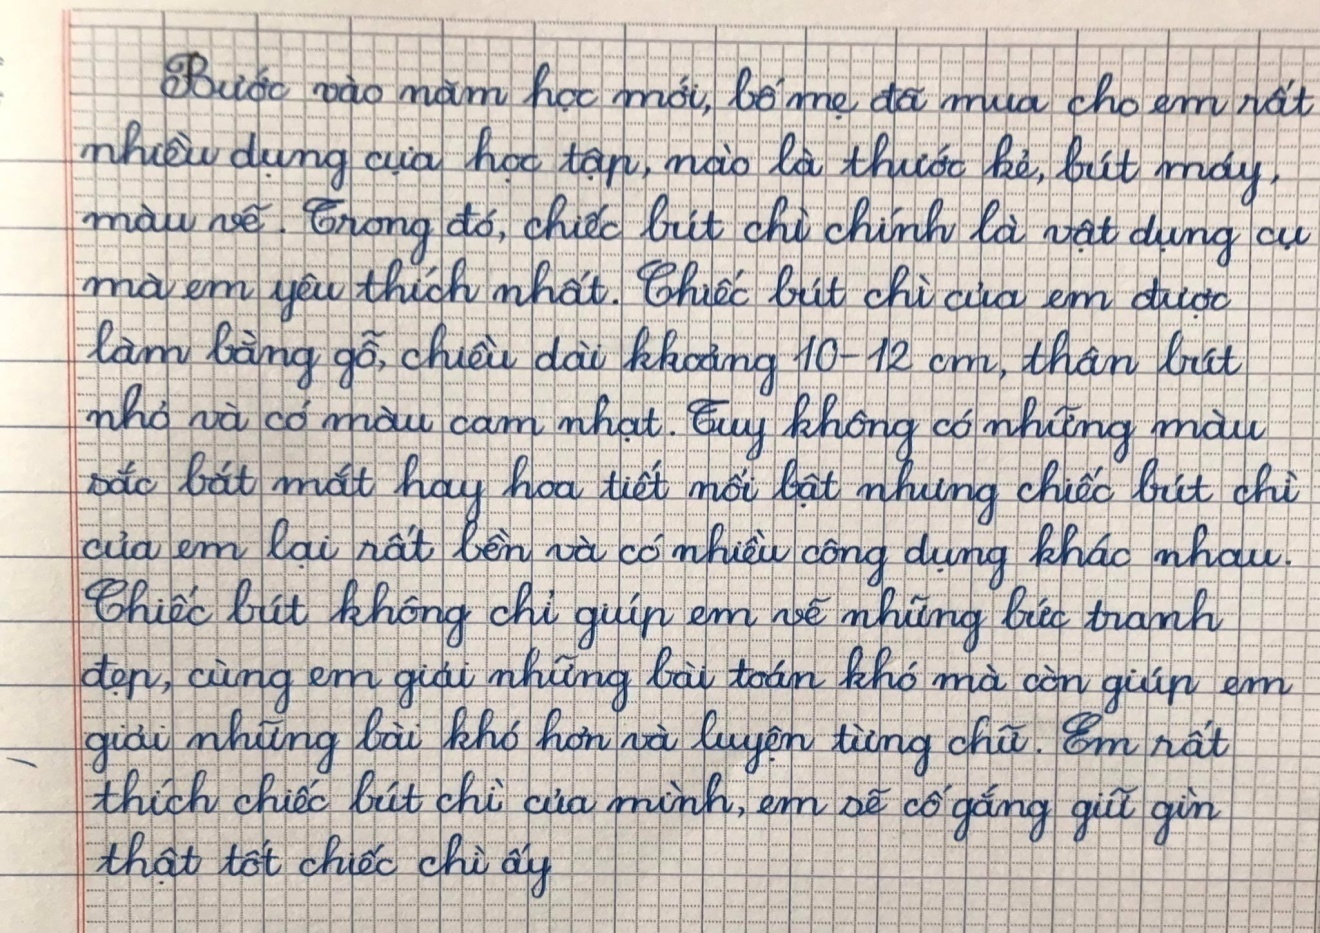 Bước vào năm học mới, bố mẹ đã mua cho em rất
nhiều dụng của học tập, nào là thước kẻ, bút máy,
màu vẽ. Trong đó, chiếc bút chì chính là vật dụng cụ
mà em yêu thích nhất. Chiếc bút chì của em được
làm bằng gỗ, chiều dài khoảng 10-12 cm, thân bút
nhỏ và có màu cam nhạt. Tuy không có những màu
sắc bắt mắt hay hoa tiết nổi bật nhưng chiếc bút chì
của em lại rất bền và có nhiều công dụng khác nhau.
Chiếc bút không chỉ guíp em vẽ những bức tranh
đẹp, cùng em giải những bài toán khó mà còn giúp em
giải những bài khó hơn và luyện từng chữ. Em rất
thích chiếc bút chì của mình, em sẽ cố gắng giữ gìn
thật tốt chiếc chì ấy